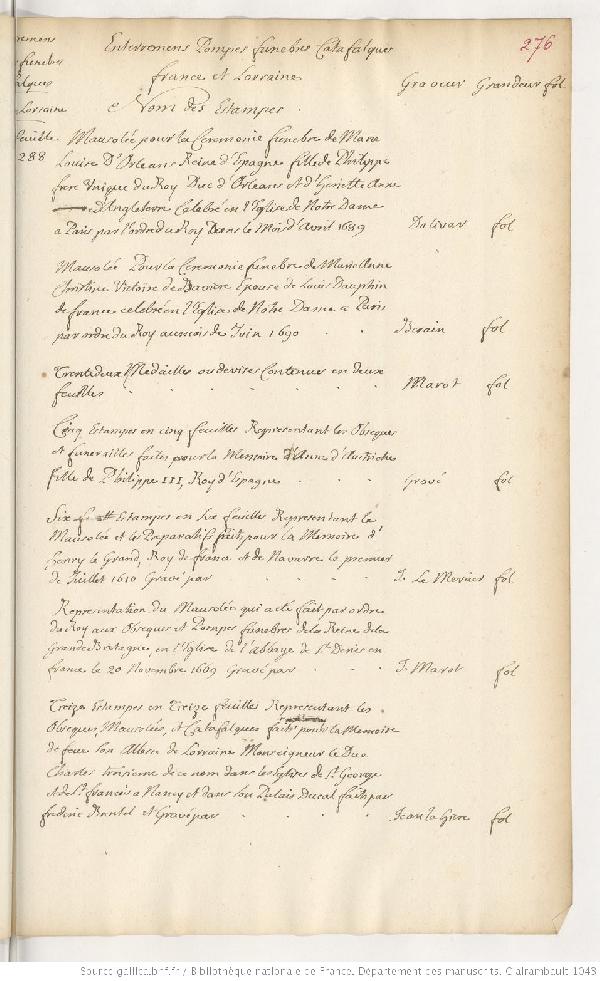 276
Enterremens Pompes funebres Catafalques
france et Lorraine
Nom des Estampes
Graveur Grandeur fol.
Lorraine
feuille
288
Mausolée pour la Ceremonie funebre de Marie
Louise D'Orleans Reine d'Espagne fille de Philippe
frere Unique du Roy Duc d'Orleans et d'Henriette Anne
d'Angleterre Celebré en l'Eglise de Notre Dame
a Paris par l'ordre du Roy Dans le Mois d'Avril 1689 fol
Mausolée Pour la Ceremonie funebre de Marie Anne
Christine Victoire de Baviere Epouse de Louis Dauphin
de france celebré en l'Eglise de Notre Dame a Paris
par ordre du Roy au mois de Juin 1690 Berain fol
Trente deux Medailles ou devises Contenues en deux
feuilles Marot fol
Cinq Estampes en cinq feuilles Representant les Obseques
et funerailles faites pour la Memoire d'Anne d'Autriche
fille de Philippe III, Roy d'Espagne Gravé fol
Six Estampes en six feuilles Representant le
Mausolée et les Preparatifs faits pour la Memoire d'
henry le Grand, Roy de france et de Navarre le premier
de Juillet 1610 Gravé par J. Le Mercier fol
Representation du Mausolée qui a esté fait par ordre
du Roy aux Obseques et Pompes funebres de la Reine de la
Grande Bretagne, en l'Eglise de l'Abbaye de St Denis en
france le 20 Novembre 1669 Gravé par J. Marot fol
Treize Estampes en Treize feuilles Representant les
Obseques, Mausolées, et Catafalques faits pour la Memoire
de feue Son Altesse de Lorraine Monseigneur le Duc
Charles troisieme de ce nom dans les Eglises de St George
et de St francois a Nancy et dans son Palais Ducal faits par
frederic Brentel et Gravé par fol
Source gallica.bnf.fr / Bibliothèque nationale de France. Département des manuscrits. Clairambault 1043